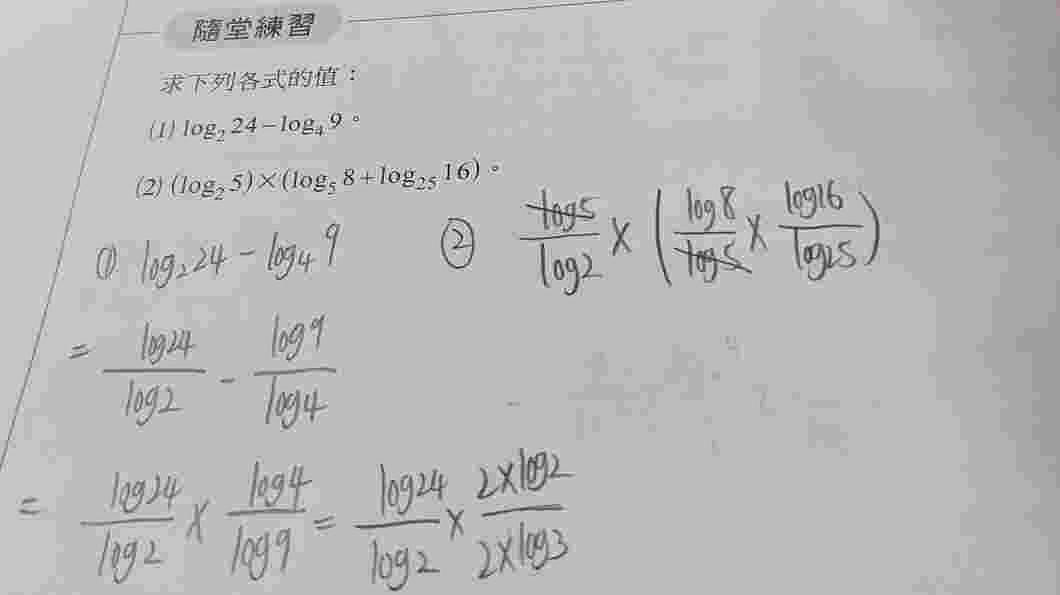 隨堂練習
求下列各式的值：
(1) log₂ 24 − log₄ 9。
(2) (log₂ 5) × (log₅ 8 + log₂₅ 16)。
① log₂ 24 − log₄ 9
= log24/log2 − log9/log4
= log24/log2 × log4/log9 = log24/log2 × 2×log2/2×log3
② log5/log2 × (log8/log5 × log16/log25)